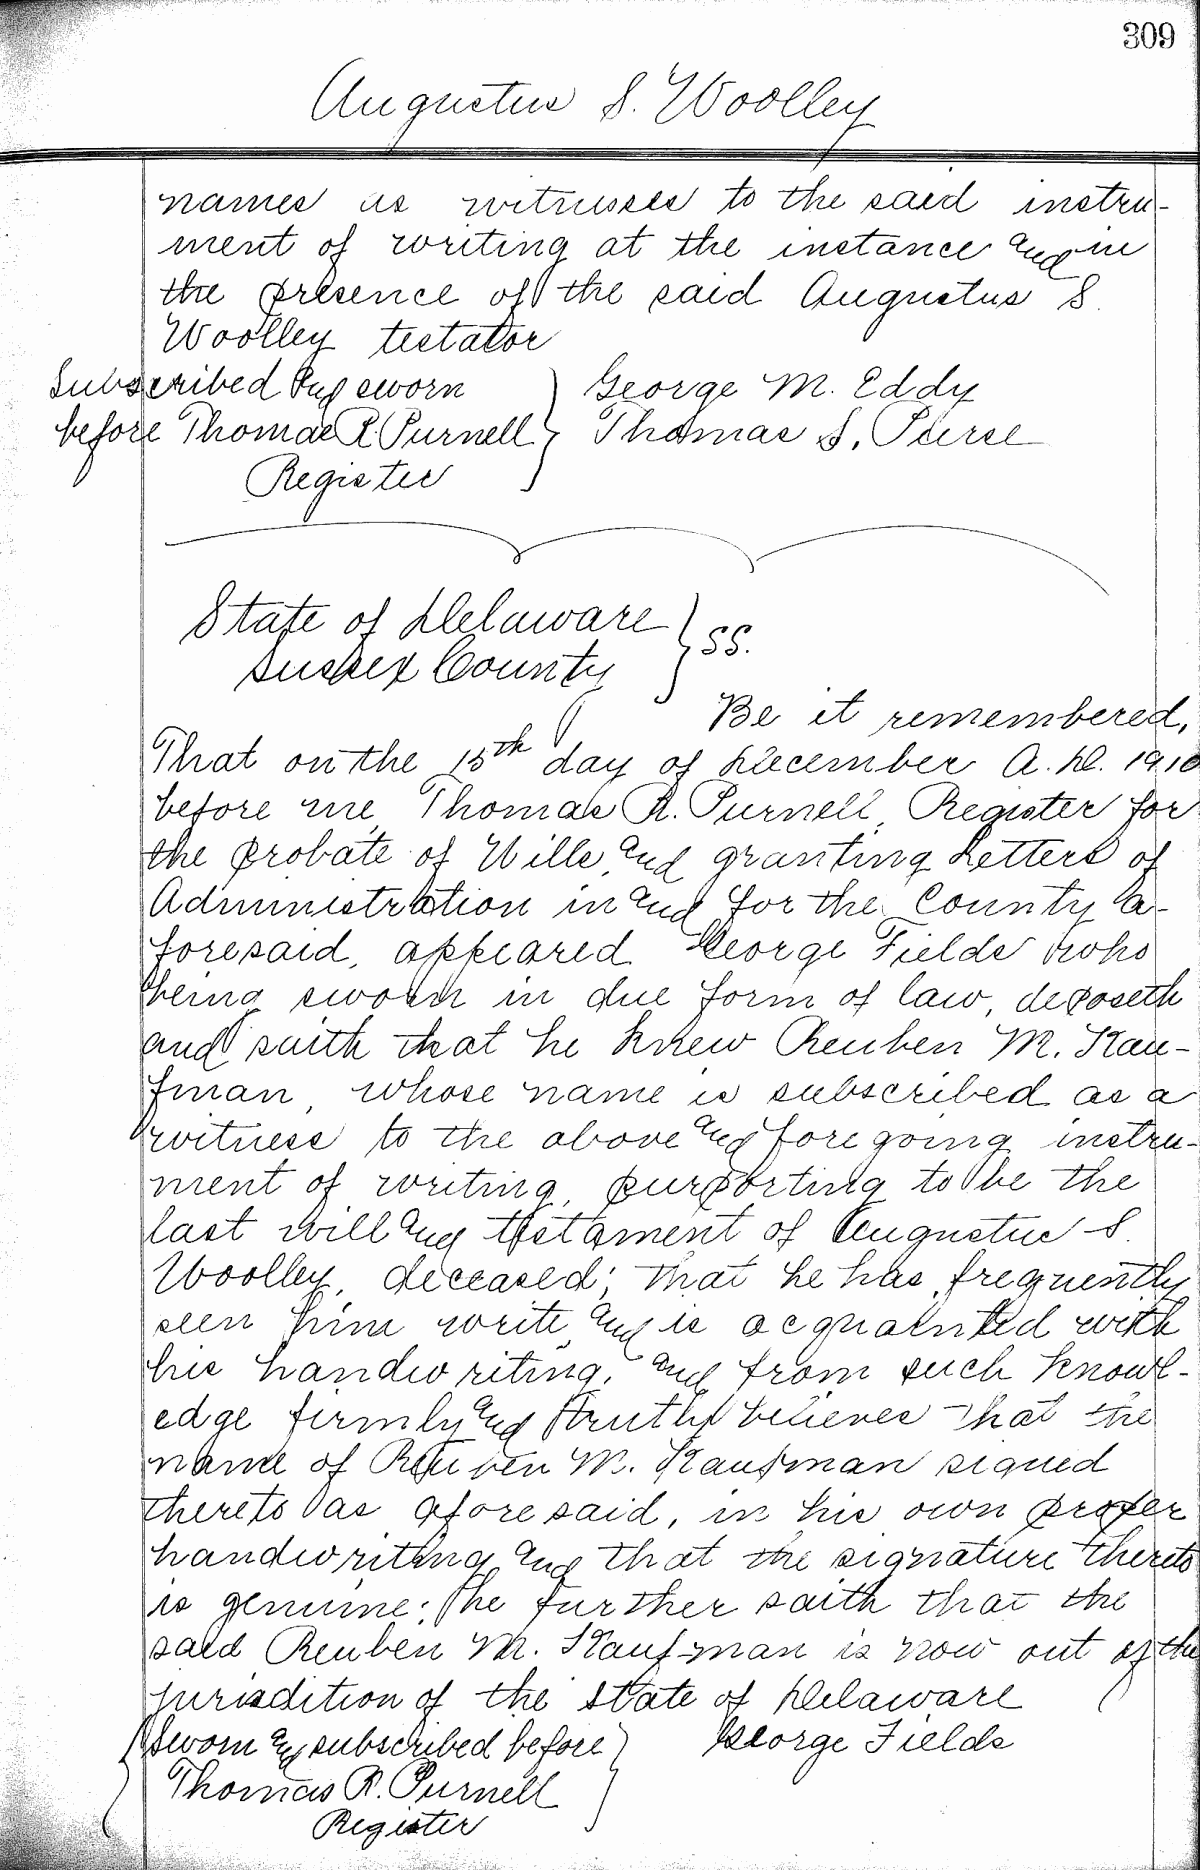 309
Augustus S. Woolley
names as witnesses to the said instru-
ment of writing at the instance and in
the presence of the said Augustus S.
Woolley testator
Subscribed and sworn
before Thomas R. Purnell
Register
George M. Eddy
Thomas S. Purse
State of Delaware
Sussex County
} SS.
Be it remembered,
That on the 15th day of December A.D. 1910
before me, Thomas R. Purnell, Register for
the probate of Wills, and granting Letters of
Administration in and for the County a-
foresaid, appeared George Fields who
being sworn in due form of law, deposeth
and saith that he knew Reuben M. Kau-
fman, whose name is subscribed as a
witness to the above and foregoing instru-
ment of writing, purporting to be the
last will and testament of Augustus S.
Woolley, deceased; that he has frequently
seen him write, and is acquainted with
his handwriting, and from such knowl-
edge firmly and truthly believes that the
name of Reuben M. Kaufman signed
thereto as aforesaid, in his own proper
handwriting and that the signature thereto
is genuine: he further saith that the
said Reuben M. Kaufman is now out of the
jurisdition of the state of Delaware
Sworn and subscribed before
Thomas R. Purnell
Register
George Fields